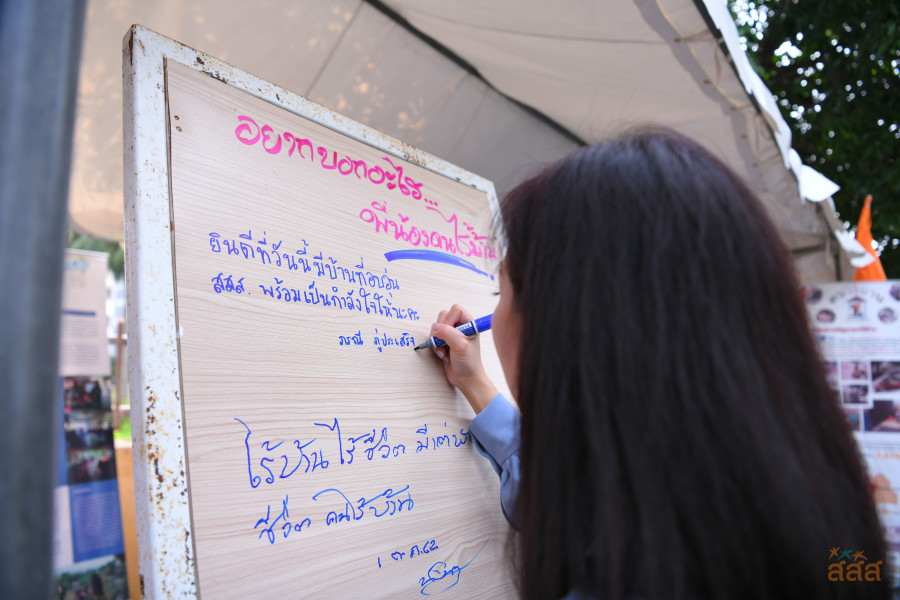 อยากบอกอะไร...
พี่น้องคนไร้บ้าน
ยินดีที่วันนี้ มีบ้านที่อบอุ่น
สสส. พร้อมเป็นกำลังใจให้นะคะ
ภรณี ภู่ประเสริฐ
ไร้บ้าน ไร้ชีวิต มีแต่
ชีวิต คนไร้บ้าน
๑ ต.ค. ๖๒
สสส